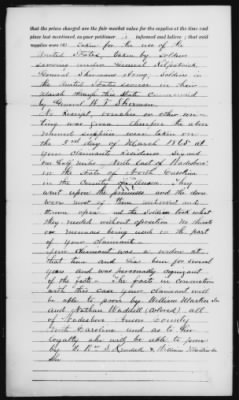 that these charges are the fair market value for the supplies at the time and
place last mentioned, as your petitioner is informed and believes; that said
supplies were (4) taken for the use of the
United States, taken by Soldiers
serving under General Kilpatrick,
General Shermans Army, Soldiers in
the United States service on their
march through this State commanded
by General W. T. Sherman.
No receipt, voucher or other
thing was given therefor the above
named supplies were taken on
the 3rd day of March 1865 at
your claimants residence
one half miles North East of Wadesboro
in the State of North Carolina
in the County of Anson. They
went upon the premises and the doors
were most of them unlocked and
thrown open and the Soldiers took what
they needed without question no
on menaces being used on the part
of your claimant.
Your claimant was a widow at
that time and has been for several
years and was personally cognizant
of the facts. The facts in connection
with this case your claimant will
be able to prove by William
and Nathan Waddell (colored) all
of Wadesboro Anson County
North Carolina and as to her
loyalty she will be able to prove
by Wm. J. & William